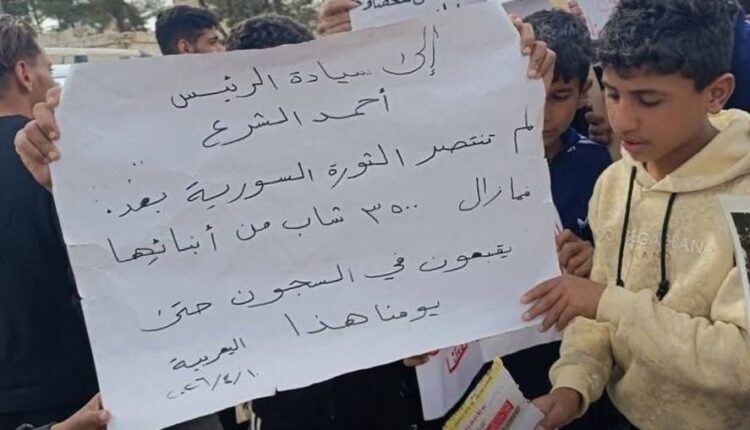 إلى سيادة الرئيس
أحمد الشرع
لم تنتصر الثورة السورية بعد.
فمازال ٣٥٠٠ شاب من أبنائها
يقبعون في السجون حتى
يومنا هذا
اليعربية
٢٠٢٦/٤/١٠